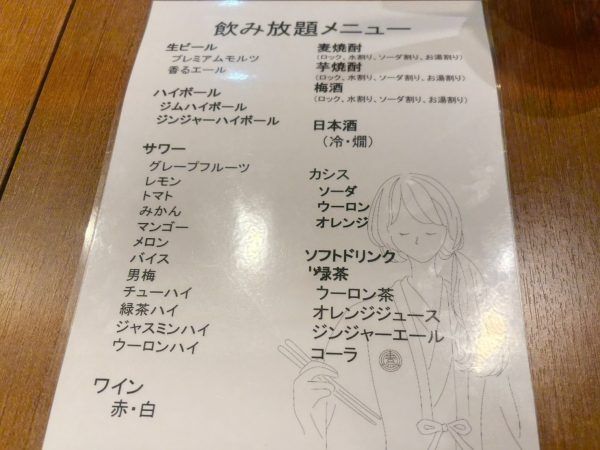 飲み放題メニュー
生ビール
プレミアムモルツ
香るエール
ハイボール
ジムハイボール
ジンジャーハイボール
サワー
グレープフルーツ
レモン
トマト
みかん
マンゴー
メロン
バイス
男梅
チューハイ
緑茶ハイ
ジャスミンハイ
ウーロンハイ
ワイン
赤・白
麦焼酎
(ロック、水割り、ソーダ割り、お湯割り)
芋焼酎
(ロック、水割り、ソーダ割り、お湯割り)
梅酒
(ロック、水割り、ソーダ割り、お湯割り)
日本酒
(冷・燗)
カシス
ソーダ
ウーロン
オレンジ
ソフトドリンク
緑茶
ウーロン茶
オレンジジュース
ジンジャーエール
コーラ